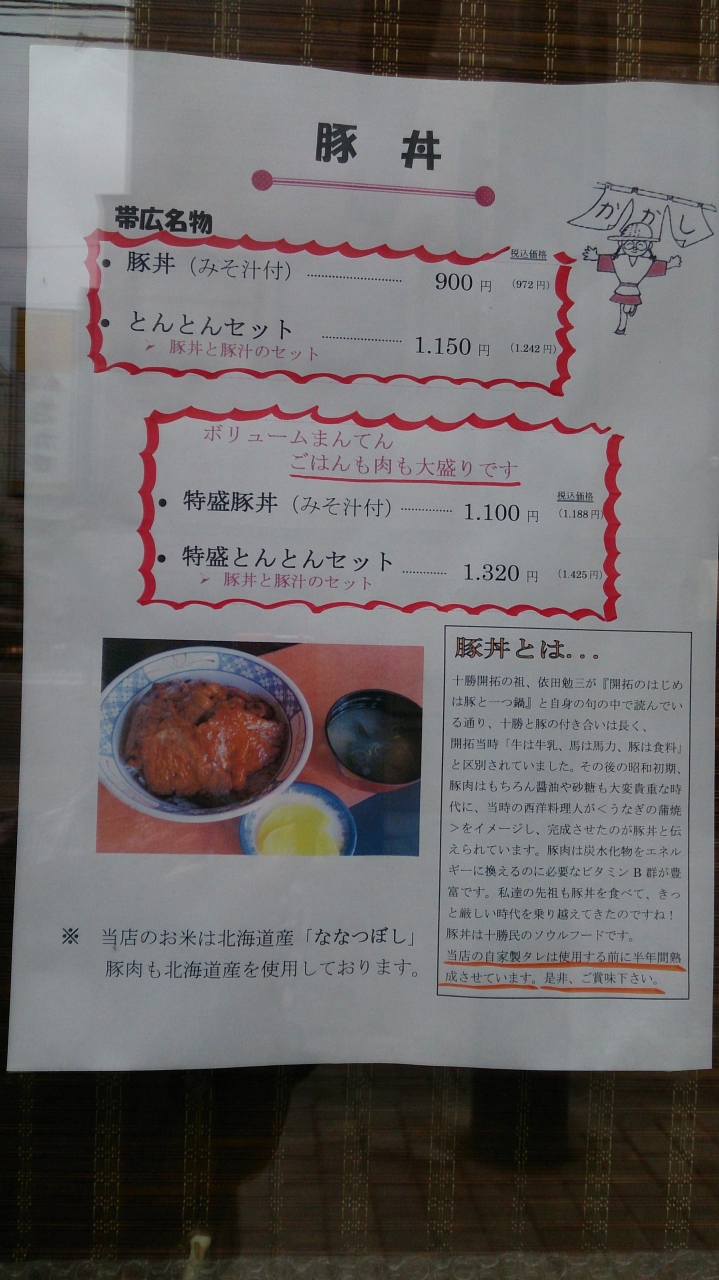 豚 丼
かかし
帯広名物
税込価格
• 豚丼（みそ汁付） ........................ 900 円 （972 円）
• とんとんセット .................... 1.150 円 （1.242 円）
➢ 豚丼と豚汁のセット
ボリュームまんてん
ごはんも肉も大盛りです
税込価格
• 特盛豚丼（みそ汁付） ............. 1.100 円 （1.188 円）
• 特盛とんとんセット ........... 1.320 円 （1.425 円）
➢ 豚丼と豚汁のセット
豚丼とは...
十勝開拓の祖、依田勉三が『開拓のはじめ
は豚と一つ鍋』と自身の句の中で読んでい
る通り、十勝と豚の付き合いは長く、
開拓当時「牛は牛乳、馬は馬力、豚は食料」
と区別されていました。その後の昭和初期、
豚肉はもちろん醤油や砂糖も大変貴重な時
代に、当時の西洋料理人が＜うなぎの蒲焼
＞をイメージし、完成させたのが豚丼と伝
えられています。豚肉は炭水化物をエネル
ギーに換えるのに必要なビタミン B 群が豊
富です。私達の先祖も豚丼を食べて、きっ
と厳しい時代を乗り越えてきたのですね！
豚丼は十勝民のソウルフードです。
当店の自家製タレは使用する前に半年間熟
成させています。是非、ご賞味下さい。
※ 当店のお米は北海道産「ななつぼし」
豚肉も北海道産を使用しております。